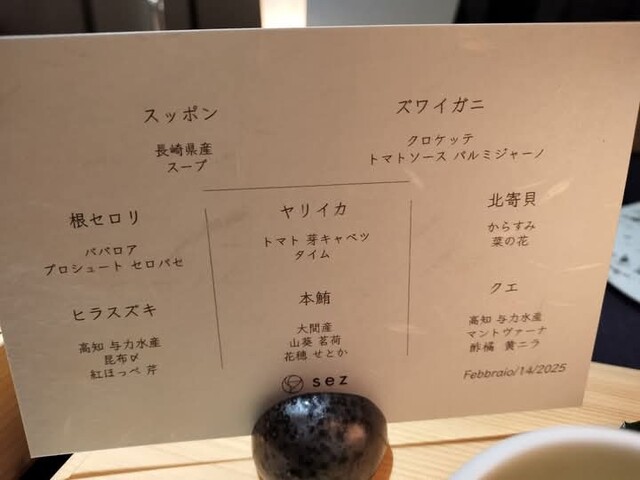 スッポン
長崎県産
スープ
ズワイガニ
クロケッテ
トマトソース パルミジャーノ
根セロリ
ババロア
プロシュート セロバセ
ヤリイカ
トマト 芽キャベツ
タイム
北寄貝
からすみ
菜の花
ヒラスズキ
高知 与力水産
昆布〆
紅ほっぺ 芹
本鮪
大間産
山葵 茗荷
花穂 せとか
クエ
高知 与力水産
マントヴァーナ
酢橘 黄ニラ
sez
Febbraio/14/2025